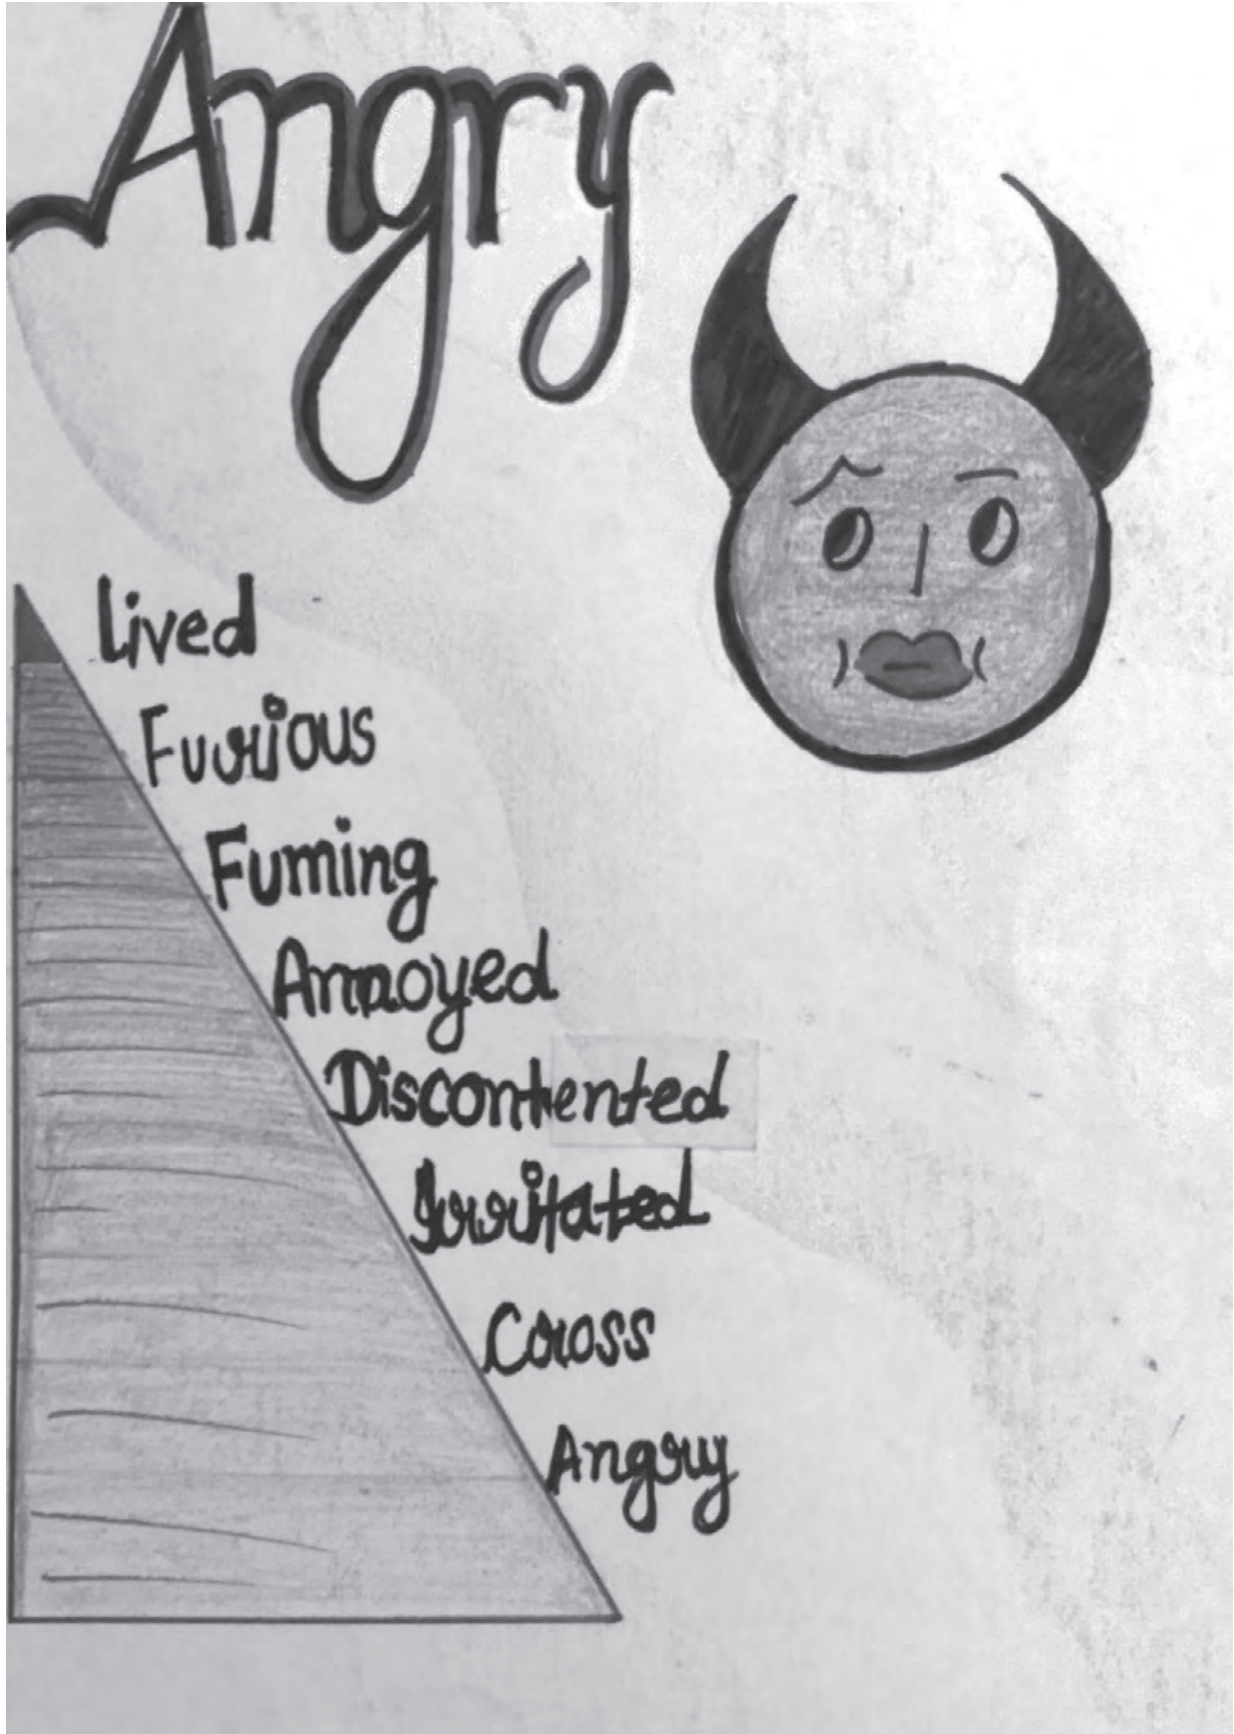 Angry
Lived
Furious
Fuming
Annoyed
Discontented
Irritated
Cross
Angry